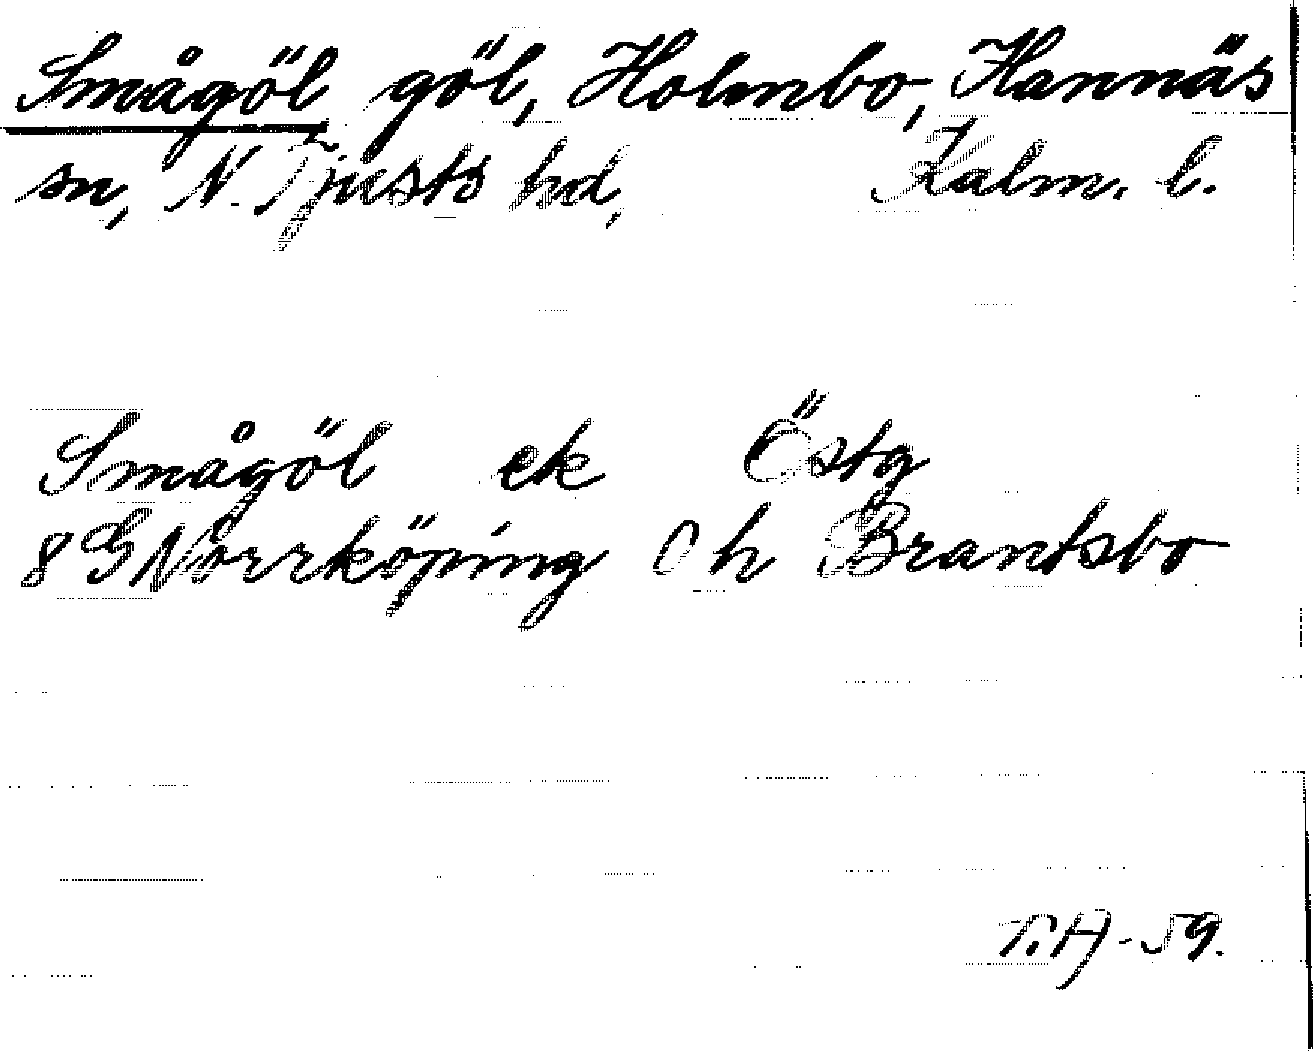 Smågöl göl, Holmbo, Hannäs
sn, N. Tjusts hd, Kalm. l.
Smågöl ek Östg
8 G Norrköping Ö h Brantsbo
T.H-59.